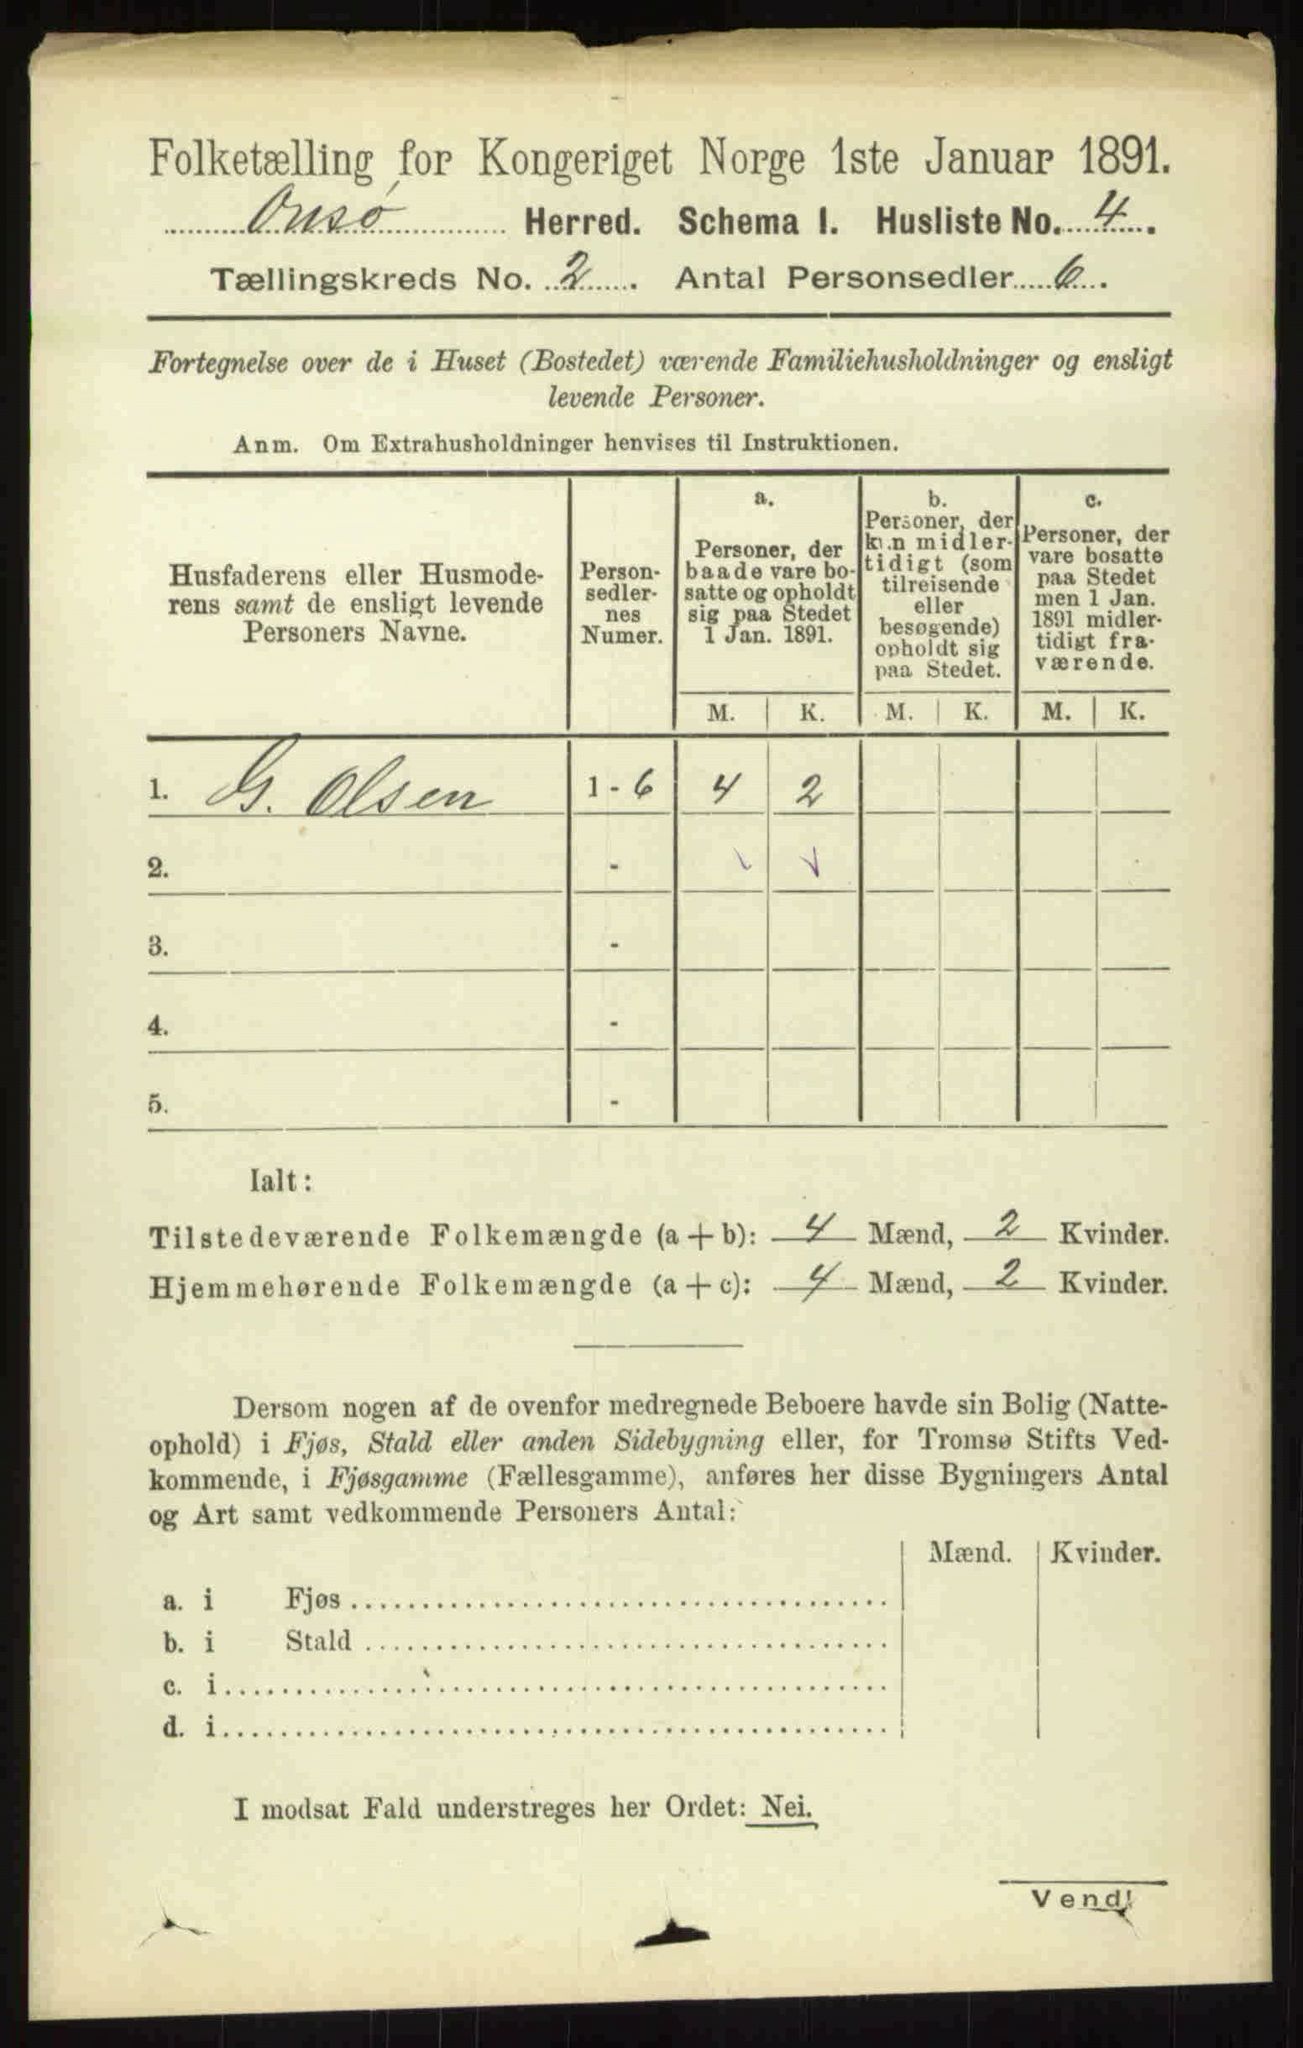 Folketælling for Kongeriget Norge 1ste Januar 1891.
Onsø Herred. Schema I. Husliste No. 4.
Tællingskreds No. 2. Antal Personsedler 6.
Fortegnelse over de i Huset (Bostedet) værende Familiehusholdninger og ensligt
levende Personer.
Anm. Om Extrahusholdninger henvises til Instruktionen.
Husfaderens eller Husmode-
rens samt de ensligt levende
Personers Navne.
Person-
sedler-
nes
Numer.
a.
Personer, der
baade vare bo-
satte og opholdt
sig paa Stedet
1 Jan. 1891.
b.
Personer, der
kun midler-
tidigt (som
tilreisende
eller
besøgende)
opholdt sig
paa Stedet.
c.
Personer, der
vare bosatte
paa Stedet
men 1 Jan.
1891 midler-
tidigt fra-
værende.
M. K. M. K. M. K.
1. G. Olsen 1 - 6 4 2
2. -
3. -
4. -
5. -
Ialt:
Tilstedeværende Folkemængde (a + b): 4 Mænd, 2 Kvinder.
Hjemmehørende Folkemængde (a + c): 4 Mænd, 2 Kvinder.
Dersom nogen af de ovenfor medregnede Beboere havde sin Bolig (Natte-
ophold) i Fjøs, Stald eller anden Sidebygning eller, for Tromsø Stifts Ved-
kommende, i Fjøsgamme (Fællesgamme), anføres her disse Bygningers Antal
og Art samt vedkommende Personers Antal:
Mænd. Kvinder.
a. i Fjøs
b. i Stald
c. i
d. i
I modsat Fald understreges her Ordet: Nei.
Vend!